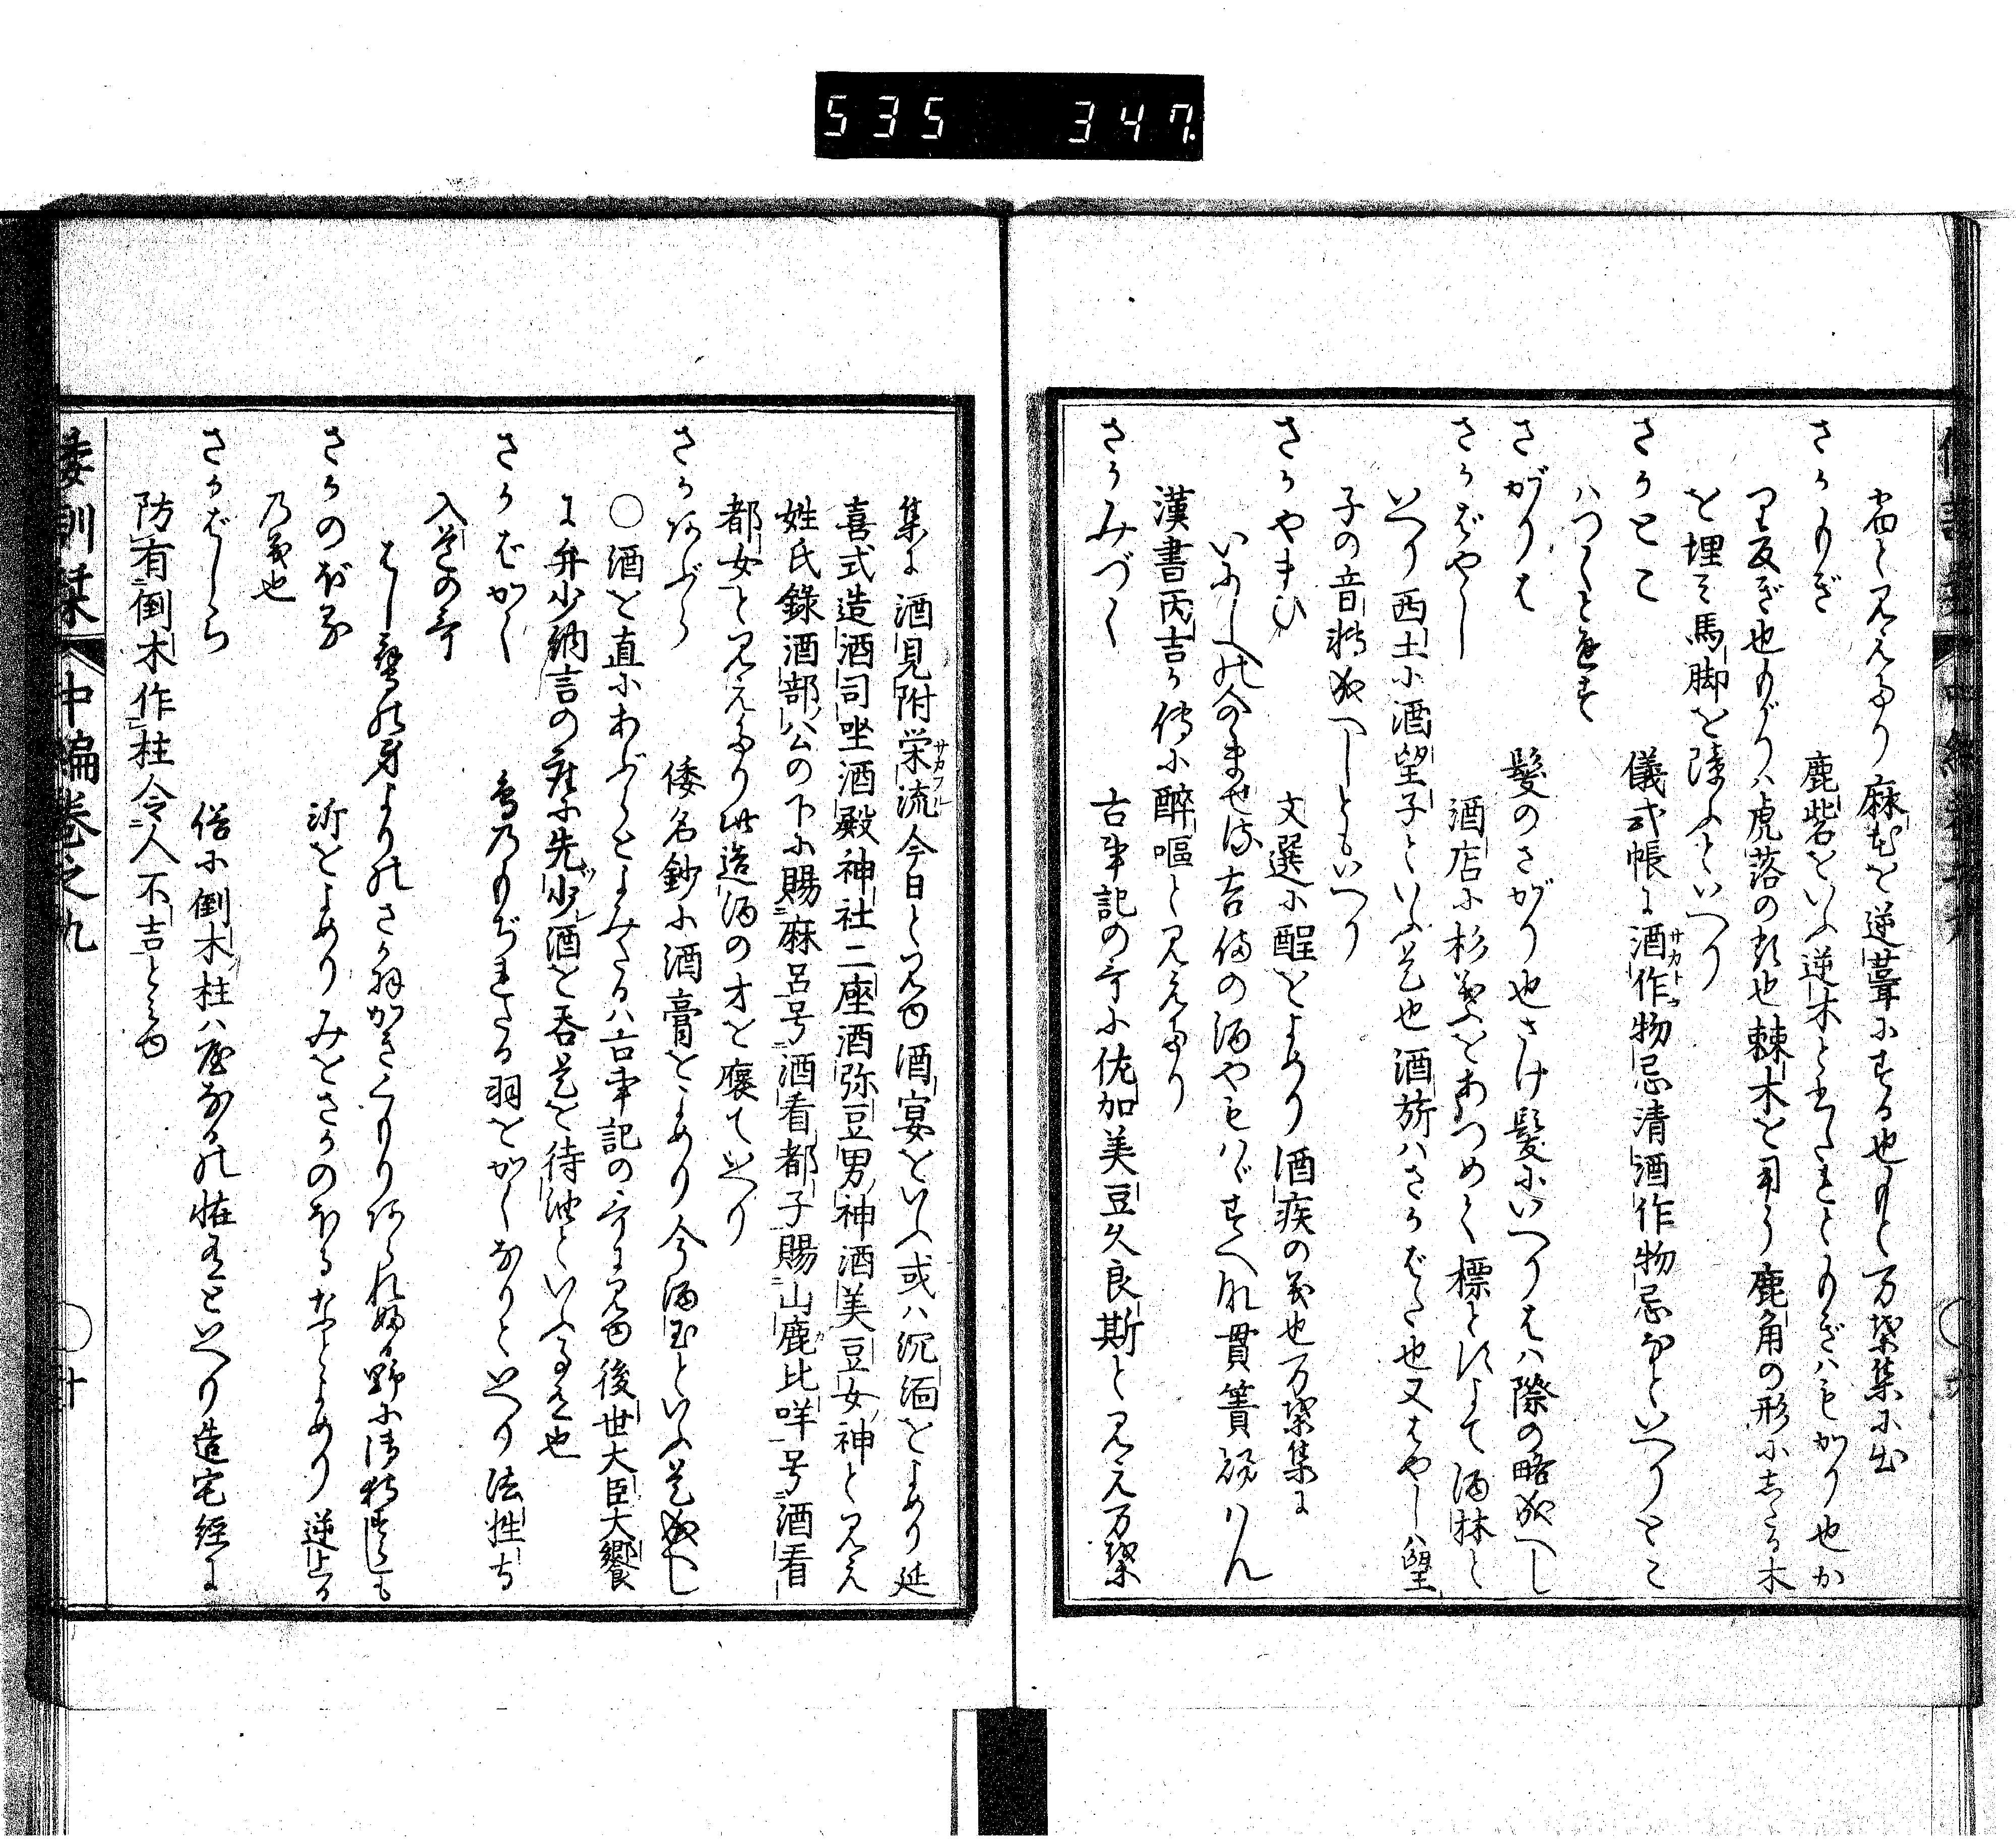 535 347
名と見えたり麻むを逆葺にする也もと万葉集に出
さかもぎ 鹿砦をいふ逆木とも書たれともぎハもがり也か
り反ぎ也もがりハ虎落の類也棘木を用う鹿角の形にしたる木
を埋ミ馬脚を障ふといへり
さかとこ 儀式帳に酒作物忌清酒作物忌なといへりとこ
ハつくと通す
さがりは 髪のさがり也さけ髪にいへりはハ際の略成へし
さかばやし 酒店に杉葉をあつめて標とすよて酒林と
いへり西土に酒望子といふ是也酒旂ハさかばた也又はやしハ望
子の音轉成へしともいへり
さかやまひ 文選に酲をよめり酒疾の義也万葉集に
いにしへの人のませる吉備の酒やもハゞすべな貫簀賜ハん
漢書丙吉か傳に醉嘔と見えたり
さかみづく 古事記の哥に佐加美豆久良斯と見え万葉
集に酒見附栄流サカフル今日と見ゆ酒宴をいふ或ハ沉湎をよめり延
喜式造酒司坐酒殿神社二座酒弥豆男神酒美豆女神と見え
姓氏錄酒部公の下に賜麻呂号酒看都子賜山鹿比咩号酒看
都女と見えたり此造酒の才を褒ていへり
さかあぶら 倭名鈔に酒膏をよめり今酒玉といふ是成へし
○酒を直にあぶらとよみたるハ古事記の哥に見ゆ後世大臣大饗
に弁少納言の座に先少酒を吞是を待油といふる是也
さかばがく 鳥のもぢれたる羽をかくなりといへり法性寺
入道の哥
はし鷹の身よりのさか羽かきくもりあられ降る野に御狩すらしも
さかのぼる 泝をよめりみをさかのぼるなとよめり逆上る
乃義也
さかばしら 俗に倒木柱ハ家なりの怪有といへり造宅経に
防有倒木作柱令人不吉と見ゆ
倭訓栞 中編巻之九 ○十